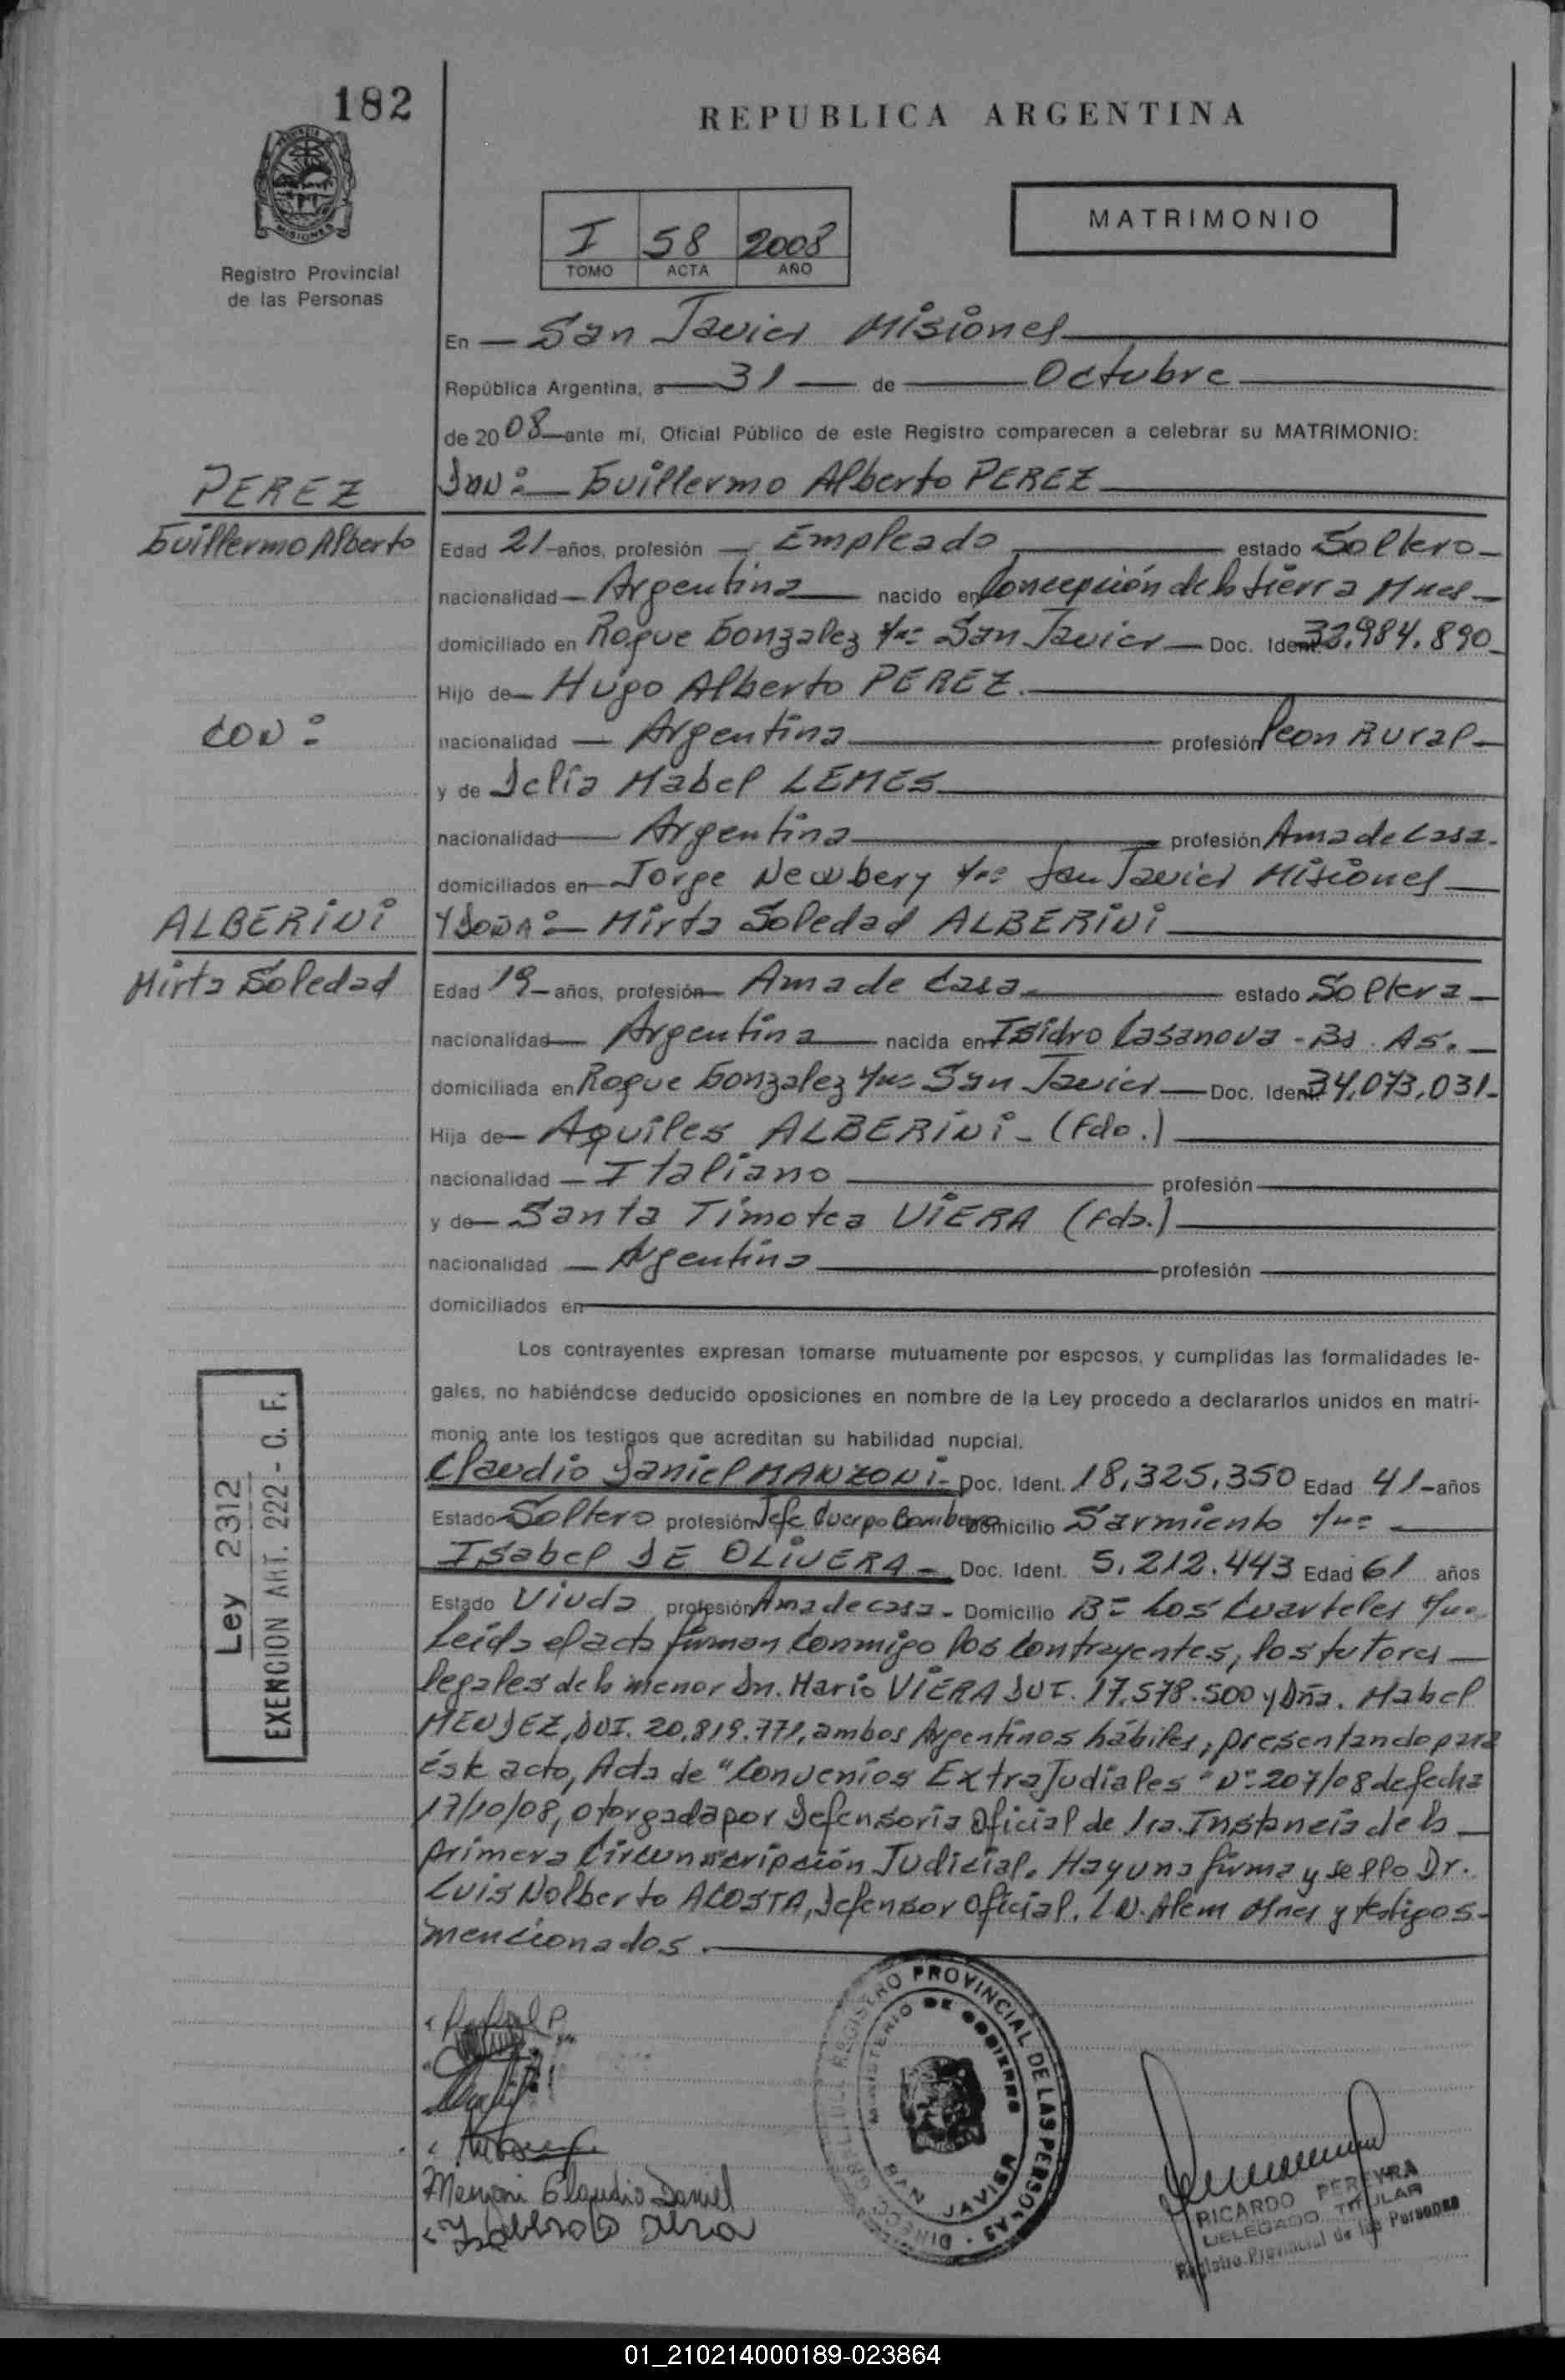 182
REPUBLICA ARGENTINA
MATRIMONIO
I 58 2008
TOMO ACTA AÑO
MISIONES
Registro Provincial
de las Personas
En San Javier Misiones
República Argentina, a 31 de Octubre
de 2008 ante mí, Oficial Público de este Registro comparecen a celebrar su MATRIMONIO:
PEREZ
DON: Guillermo Alberto PEREZ
Guillermo Alberto
Edad 21 años, profesión Empleado estado Soltero
nacionalidad Argentina nacido en Concepción de la Sierra Mnes
domiciliado en Roque Gonzalez San Javier Doc. Ident. 32.984.890
Hijo de Hugo Alberto PEREZ.
CON:
nacionalidad Argentina profesión Peon Rural
y de Delia Mabel LEMES
nacionalidad Argentina profesión Ama de Casa.
domiciliados en Jorge Newbery San Javier Misiones
ALBERINI
Y DOÑA: Mirta Soledad ALBERINI
Mirta Soledad
Edad 19 años, profesión Ama de Casa estado Soltera
nacionalidad Argentina nacida en Isidro Casanova - Bs. As.
domiciliada en Roque Gonzalez San Javier Doc. Ident. 34.073.031
Hija de Aquiles ALBERINI - (Fdo.)
nacionalidad Italiano profesión
y de Santa Timotea VIERA (Fda.)
nacionalidad Argentina profesión
domiciliados en
Los contrayentes expresan tomarse mutuamente por esposos, y cumplidas las formalidades le-
gales, no habiéndose deducido oposiciones en nombre de la Ley procedo a declararlos unidos en matri-
monio ante los testigos que acreditan su habilidad nupcial.
Claudio Daniel MANZONI - Doc. Ident. 18,325,350 Edad 41 años
Estado Soltero profesión Jefe Cuerpo Bomberos Domicilio Sarmiento
Isabel DE OLIVERA - Doc. Ident. 5.212.443 Edad 61 años
Estado Viuda profesión Ama de casa - Domicilio Bº Los Cuarteles
Leída el acta firman conmigo los contrayentes, los tutores
legales de la menor Dn. Mario VIERA DNI. 17.578.500 y Dña. Mabel
MENDEZ, DNI. 20.819.771, ambos Argentinos hábiles, presentando para
éste acto, Acta de "Convenios ExtraJudiales" Nº 207/08 de fecha
17/10/08, otorgada por Defensoría Oficial de 1ra. Instancia de la
primera Circunscripción Judicial. Hay una firma y sello Dr.
Luis Nolberto ACOSTA, Defensor Oficial. L.N. Alem Mnes y testigos
mencionados.
Ley 2312
EXENCION ART. 222 - C. F.
Manzoni Claudio Daniel
DIRECC. GRAL. DEL REGISTRO PROVINCIAL DE LAS PERSONAS
MINISTERIO DE GOBIERNO
SAN JAVIER
RICARDO PEREYRA
DELEGADO TITULAR
Registro Provincial de las Personas
01_210214000189-023864